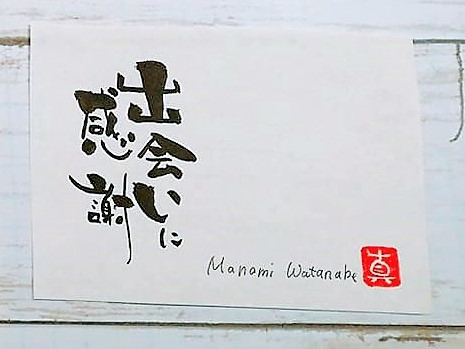 出会いに
感謝
Manami Watanabe
真